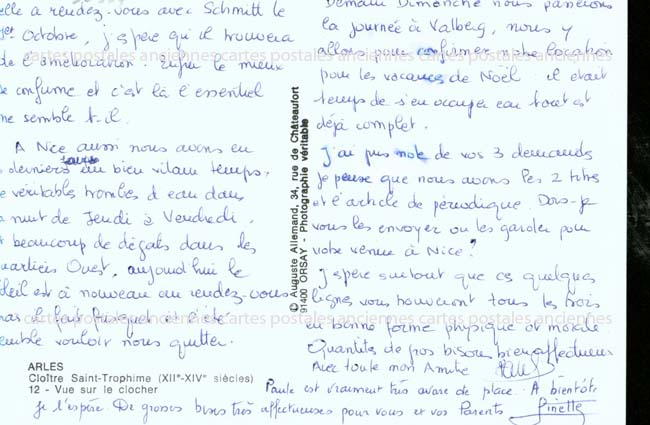 elle a rendez-vous avec Schmitt le
1er Octobre, j'espère qu'il trouvera
de l'amélioration. Enfin le mieux
se confirme et c'est là l'essentiel
me semble t-il.
A Nice aussi nous avons eu
derniers temps un bien vilain temps,
de véritables trombes d'eau dans
la nuit de Jeudi à Vendredi,
et beaucoup de dégâts dans les
quartiers Ouest, aujourd'hui le
soleil est à nouveau au rendez-vous
mais il fait frisquet et l'été
semble vouloir nous quitter.
ARLES
Cloître Saint-Trophime (XIIe-XIVe siècles)
12 - Vue sur le clocher
© Auguste Allemand, 34, rue de Châteaufort
91400 ORSAY - Photographie véritable
Demain Dimanche nous passerons
la journée à Valberg, nous y
allons pour confirmer notre location
pour les vacances de Noël : il était
temps de s'en occuper car tout est
déjà complet.
J'ai pris note de vos 3 demandes
Je pense que nous avons les 2 titres
et l'article de périodique. Dois-je
vous les envoyer ou les garder pour
votre venue à Nice?
J'espère surtout que ces quelques
lignes vous trouveront tous les trois
en bonne forme physique et morale
Quantités de gros bisous bien affectueux
Avec toute mon Amitié
Paule est vraiment très avare de place. A bientôt
je l'espère. De grosses bises très affectueuses pour vous et vos Parents Ginette
cartes postales anciennes cartes postales anciennes cartes postales anciennes
cartes postales anciennes cartes postales anciennes cartes postales anciennes